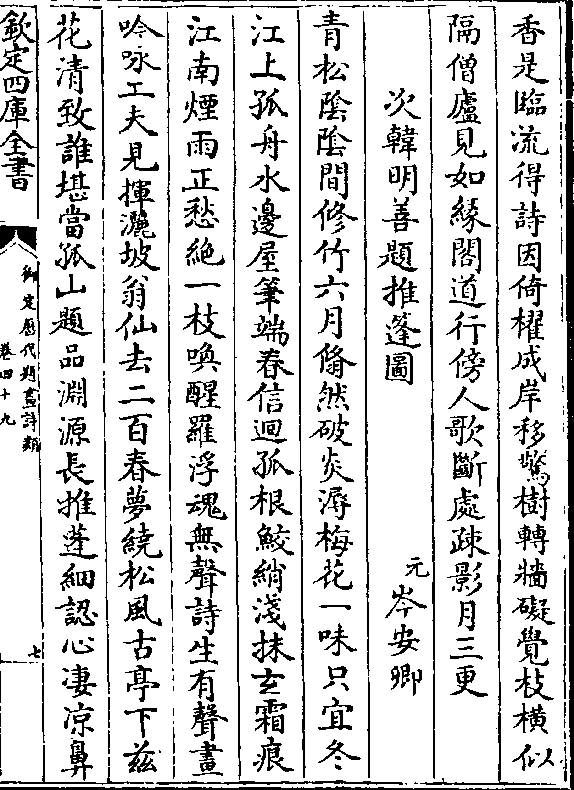 香是臨流得詩因倚櫂成岸移驚樹轉牆礙覺枝橫似
隔僧廬見如緣閣道行傍人歌斷處疎影月三更
次韓明善題推篷圖
元岑安卿
青松陰陰間修竹六月翛然破炎溽梅花一味只宜冬
江上孤舟水邊屋筆端春信迴孤根鮫綃淺抹玄霜痕
江南煙雨正愁絕一枝喚醒羅浮魂無聲詩生有聲畫
吟咏工夫見揮灑坡翁仙去二百春夢繞松風古亭下兹
花清致誰堪當孤山題品淵源長推蓬細認心凄凉鼻
欽定四庫全書
御定歷代題畫詩類
卷四十九
七